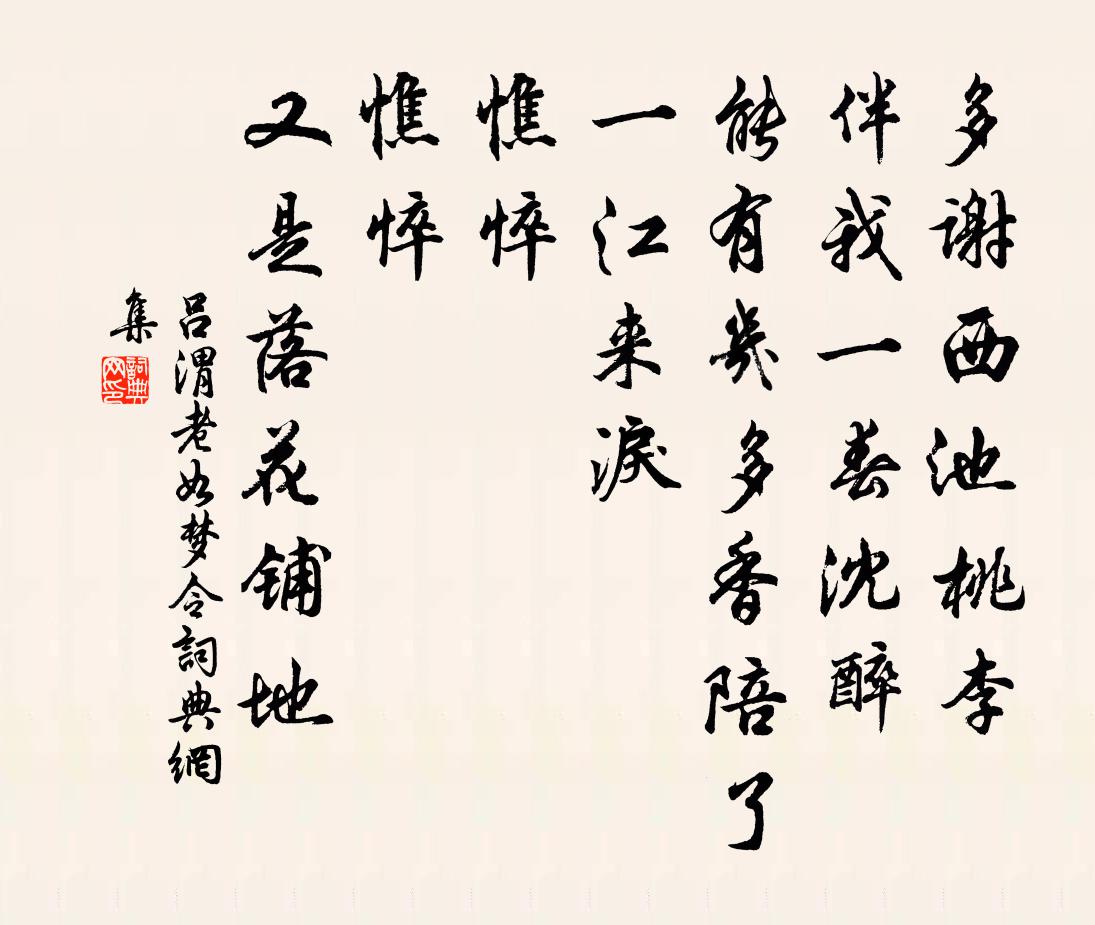 多谢西池桃李
伴我一春沈醉
能有幾多香陪了
一江来淚
憔悴
憔悴
又是落花铺地
吕渭老如梦令詞典網
集
詞典网印